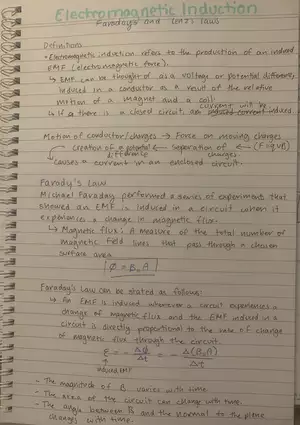 Electromagnetic Induction
Faraday's and Lenz's laws
Definitions
• Electromagnetic induction refers to the production of an induced
EMF (electromagnetic force).
↳ EMF can be thought of as a voltage or potential difference
induced in a conductor as a result of the relative
motion of a magnet and a coil.
↳ If there is a closed circuit current will be induced
Motion of conductor/charges → Force on moving charges
Creation of a potential ← Separation of ← (F=qvB)
difference charges.
causes a current in an enclosed circuit.
Farady's Law
Michael Faraday performed a series of experiment that
showed an EMF is induced in a circuit when it
experiences a change in magnetic flux.
↳ Magnetic flux: A measure of the total number of
magnetic field lines that pass through a chosen
surface area
Faraday's Law can be stated as follows:
↳ An EMF is induced whenever a circuit experiences a
change of magnetic flux and the EMF induced in a
circuit is directly proportional to the rate of change
of magnetic flux through the circuit.
- The magnitude of B varies with time.
- The area of the circuit can change with time.
- The angle between B and the normal to the plane
changes with time.